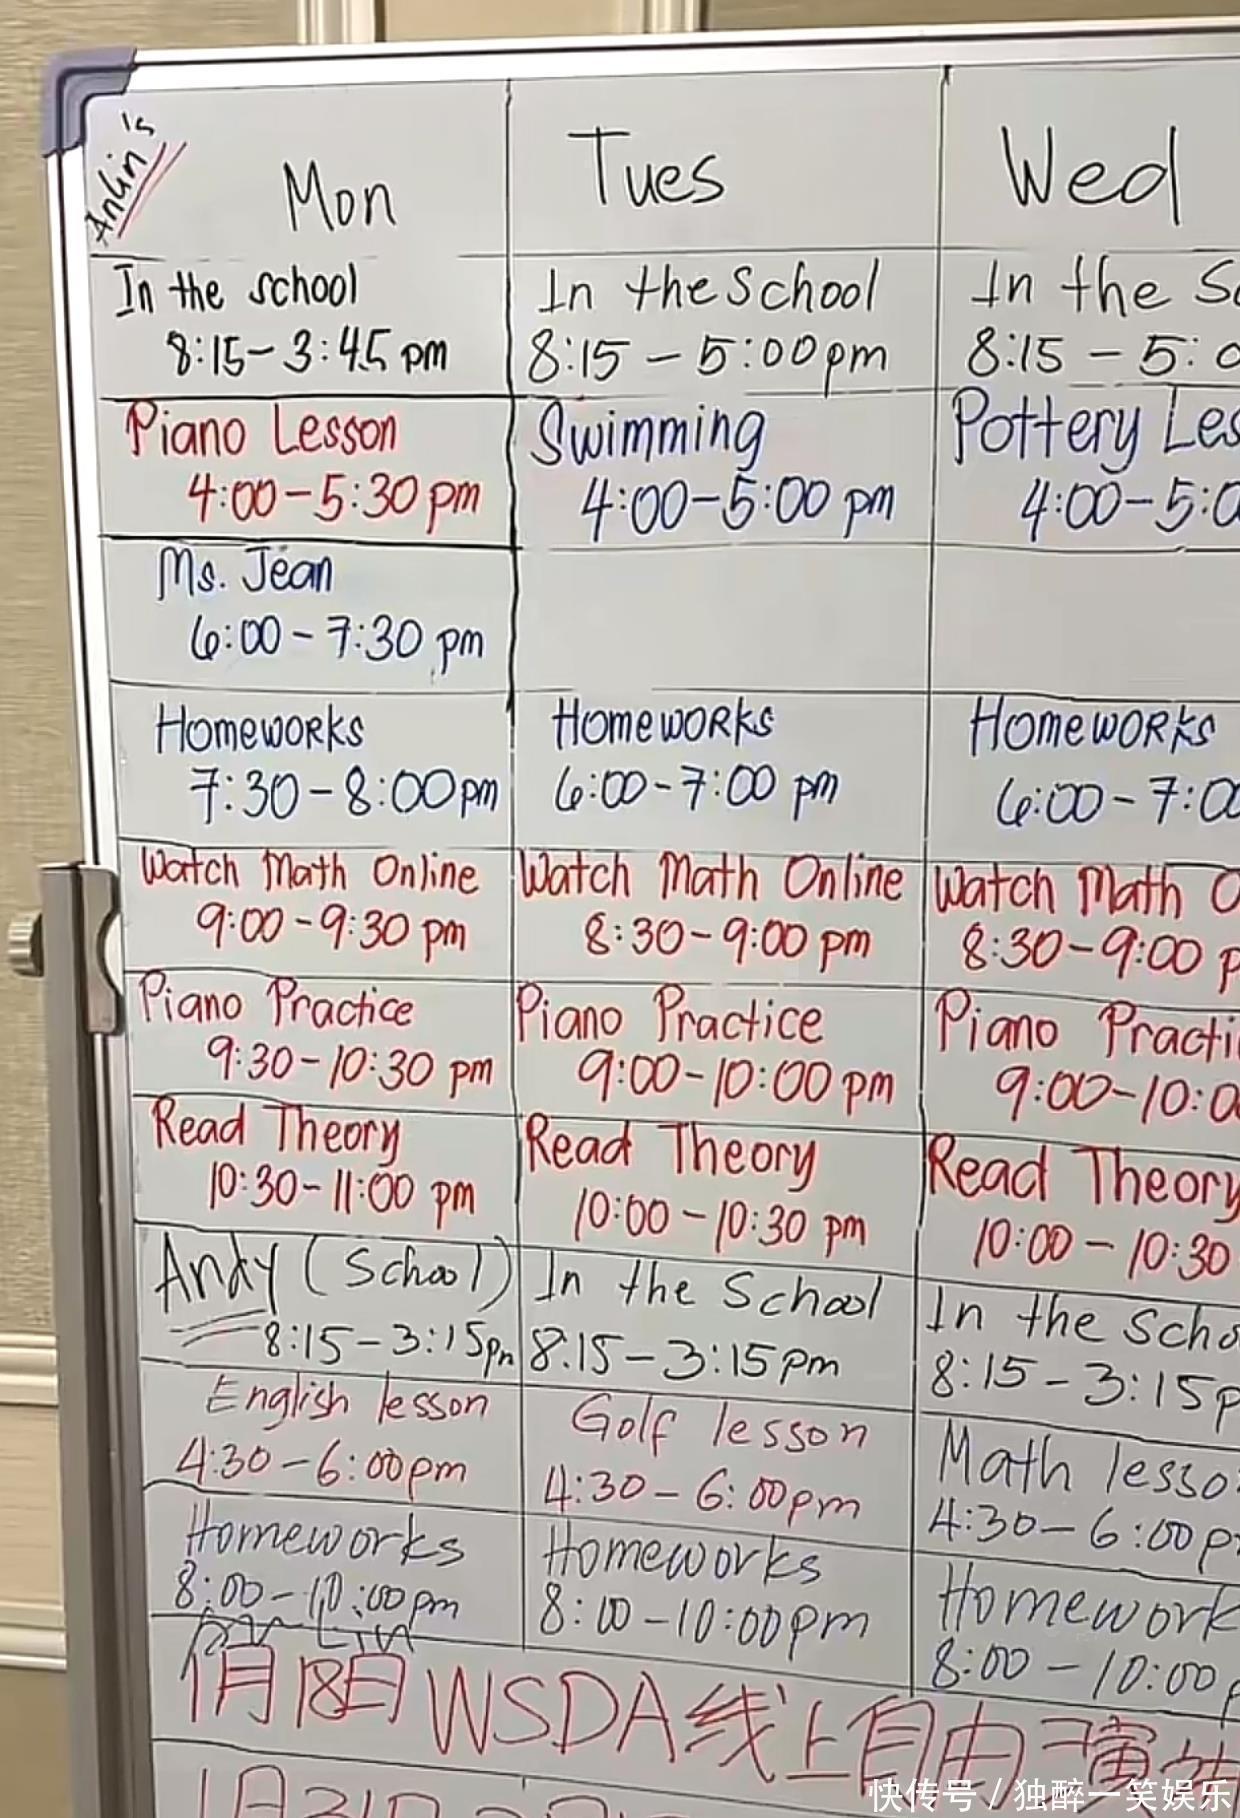 Anlin's
Mon Tues Wed
In the school In the School In the
8:15-3:45 pm 8:15-5:00pm 8:15-5:
Piano Lesson Swimming Pottery
4:00-5:30 pm 4:00-5:00 pm 4:00-5:
Ms. Jean
6:00-7:30 pm
Homeworks Homeworks Homeworks
7:30-8:00pm 6:00-7:00 pm 6:00-7:00
Watch Math Online Watch Math Online Watch Math
9:00-9:30 pm 8:30-9:00 pm 8:30-9:00
Piano Practice Piano Practice Piano
9:30-10:30 pm 9:00-10:00 pm 9:00-10:
Read Theory Read Theory Read Theory
10:30-11:00 pm 10:00-10:30 pm 10:00-10:30
Andy (School) In the School In the
8:15-3:15pm 8:15-3:15pm 8:15-3:15
English lesson Golf lesson Math
4:30-6:00pm 4:30-6:00pm 4:30-6:00
Homeworks Homeworks Homework
8:00-10:00pm 8:00-10:00pm 8:00-10:00
1月18日WSDA线上自由演
快传号/独醉一笑娱乐